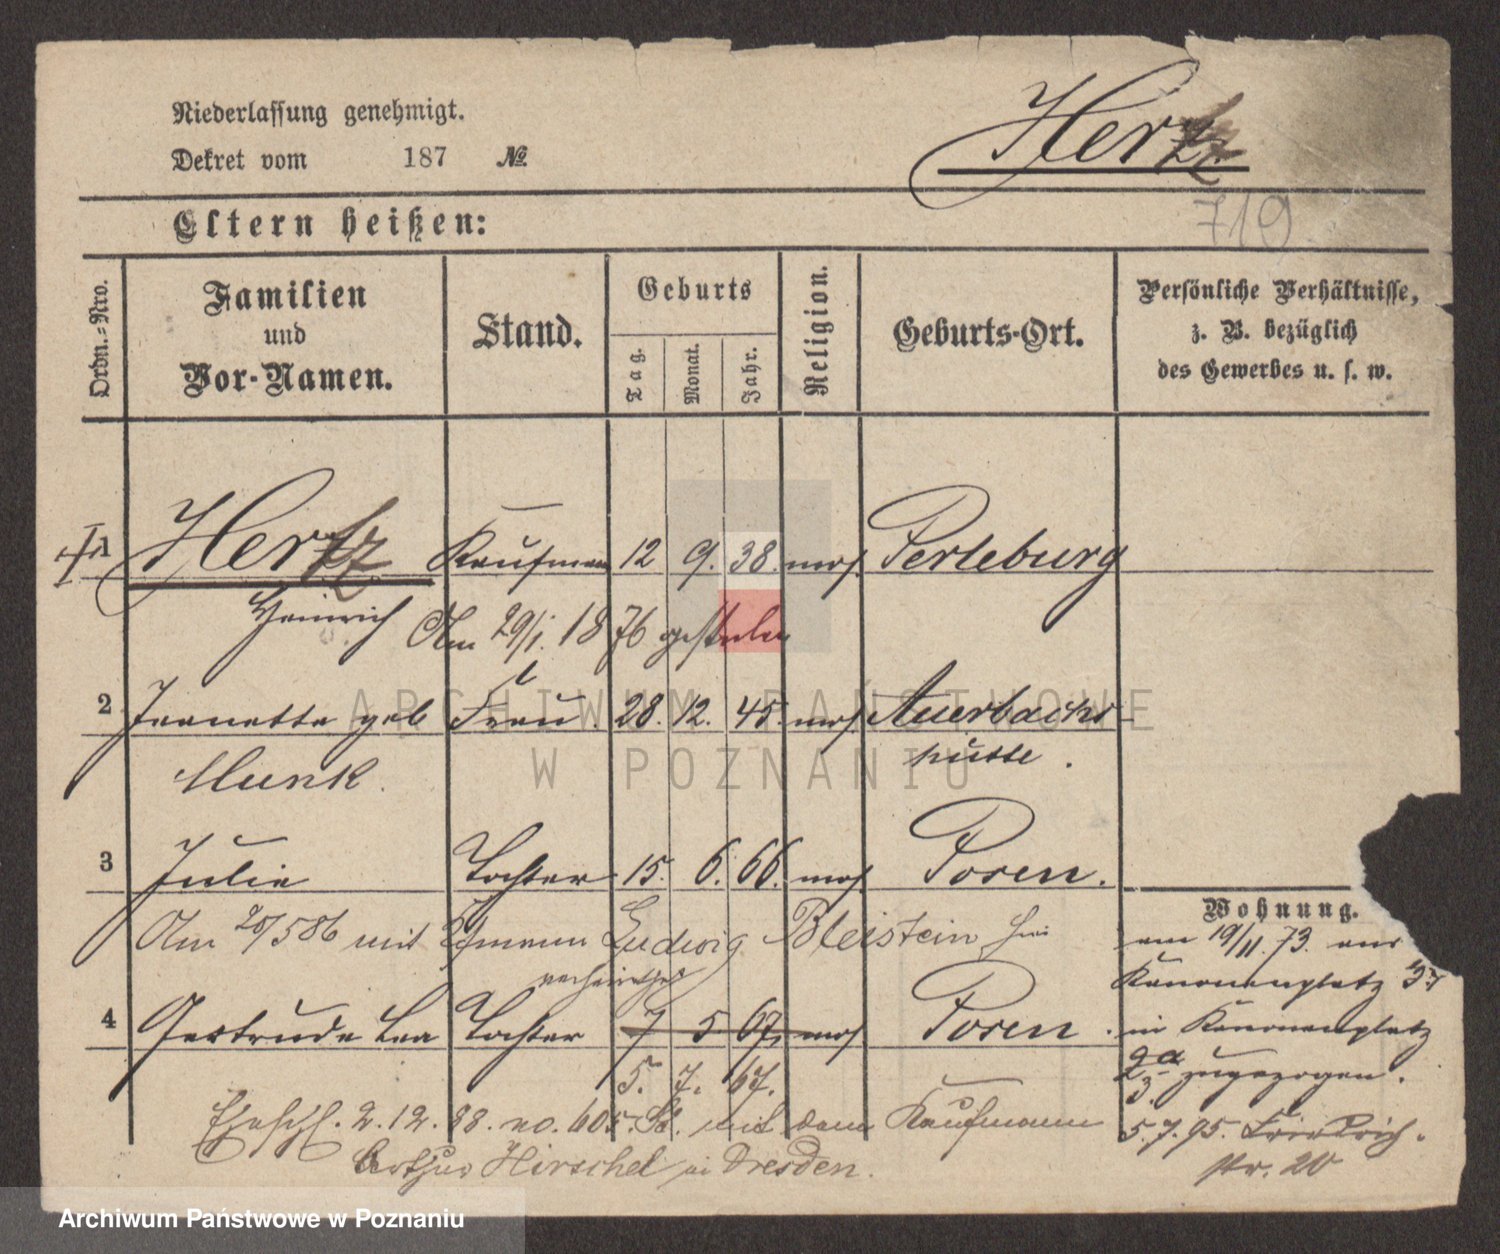 Niederlassung genehmigt.
Dekret vom 187 №
Hertz
719
Eltern heißen:
Ordn.-Nro.
Familien
und
Vor-Namen.
Stand.
Geburts
Tag.
Monat.
Jahr.
Religion.
Geburts-Ort.
Persönliche Verhältnisse,
z. B. bezüglich
des Gewerbes u. s. w.
1 Hertz Kaufmann 12 9. 38. mos. Perleburg
Heinrich Am 29/1. 1876 gestorben
2 Jeanette geb Frau. 28. 12. 45. mos Auerbachs
Munk. hütte.
ARCHIWUM PAŃSTWOWE
W POZNANIU
3 Julie Tochter 15. 6. 66. mos. Posen.
Am 20/586 mit Kfmann Ludwig Bleistein
verheirathet
4 Gertrude Lea Tochter 7 5 67. mos Posen.
5. 7. 67.
Eheschl. 2. 12. 88. no. 605. St. mit dem Kaufmann
Arthur Hirschel in Dresden.
Wohnung.
am 19/11. 73. aus
Kanonenplatz
in Kanonenplatz
zugezogen.
5.7.95. Friedrich-
str. 20
Archiwum Państwowe w Poznaniu